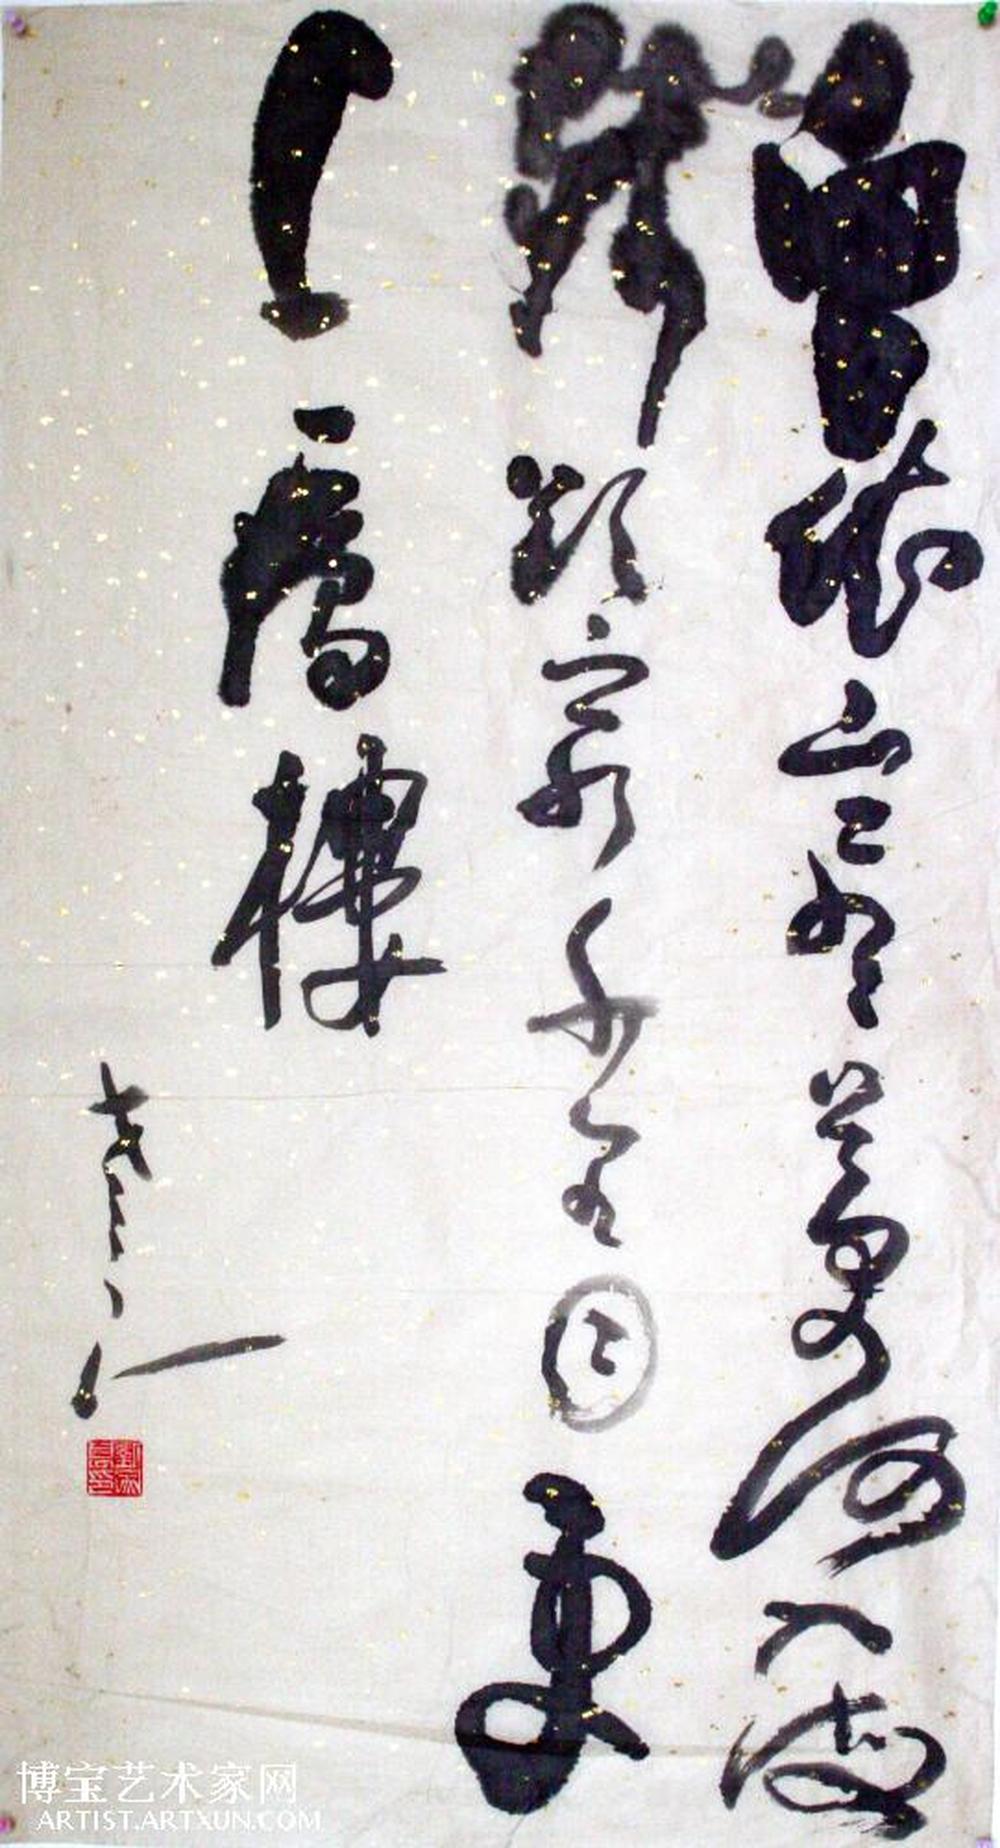 白日依山盡黃河入海
流欲窮千里目更
上一層樓
博宝艺术家网
ARTIST.ARTXUN.COM